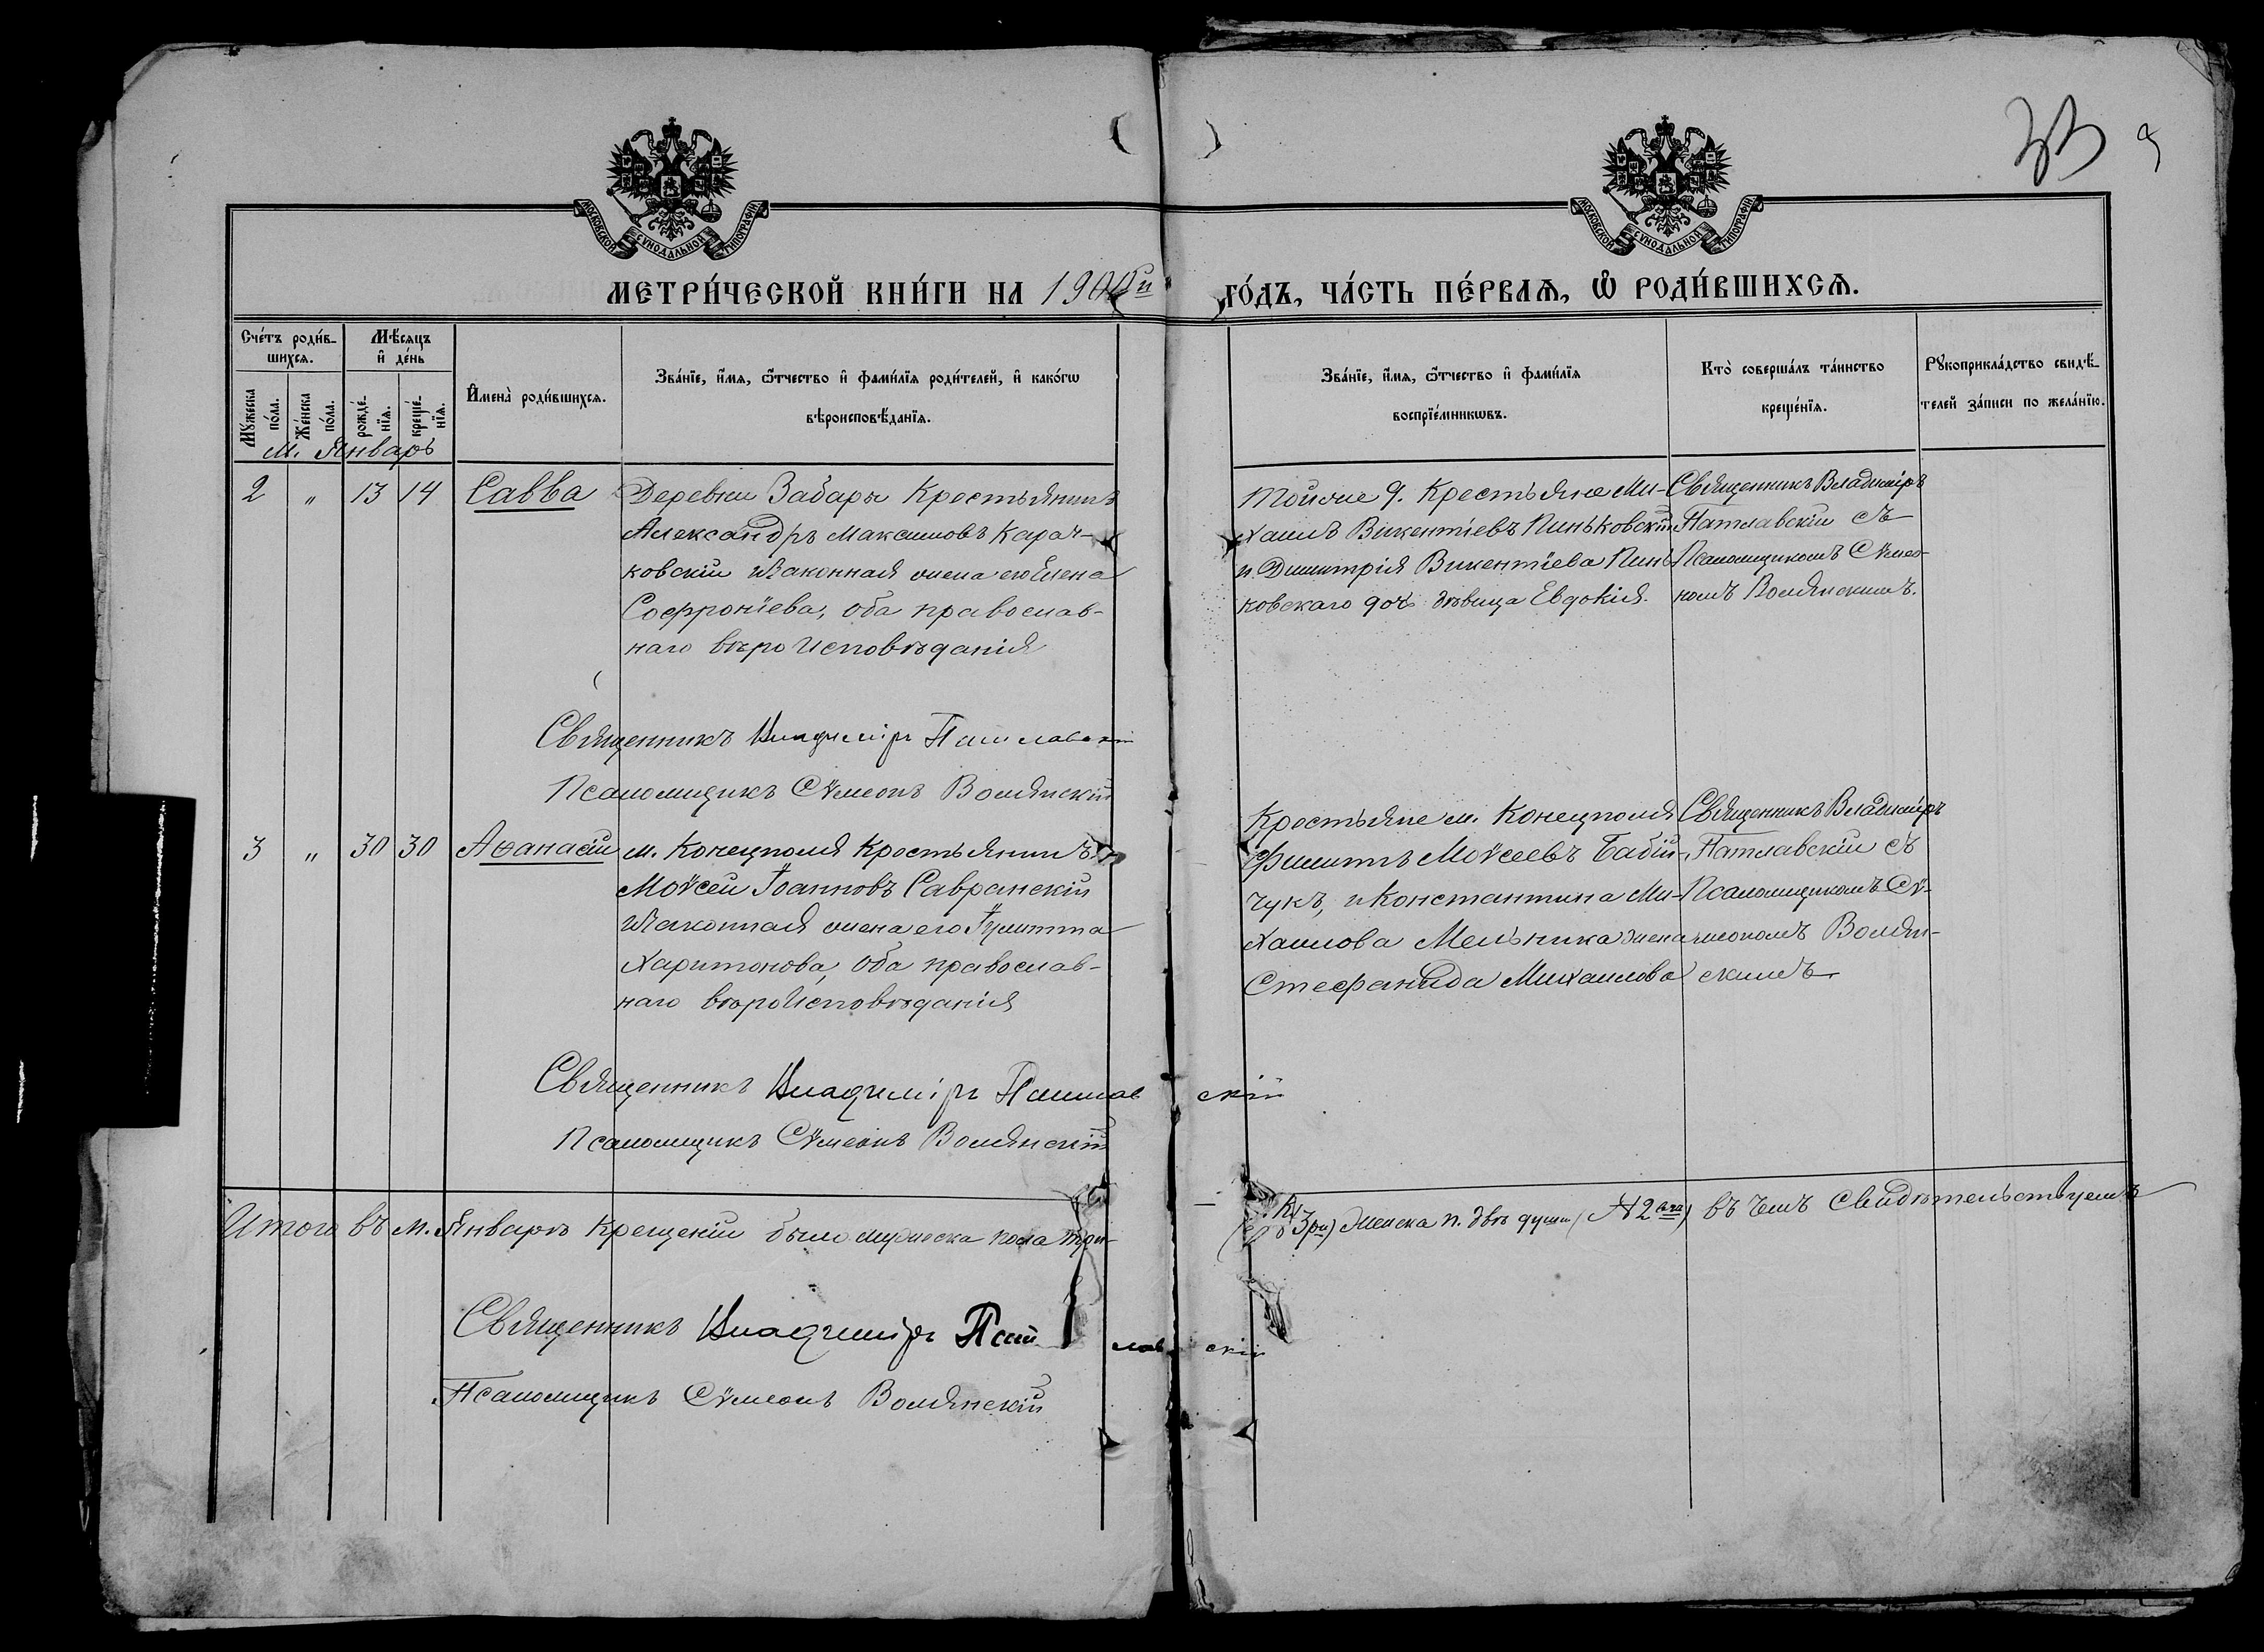 33 9
МОСКОВСКОЙ СѴНОДАЛЬНОЙ ТИПОГРАФІИ
МОСКОВСКОЙ СѴНОДАЛЬНОЙ ТИПОГРАФІИ
МЕТРИ́ЧЕСКОЙ КНИ́ГИ НА 1900й ГО́ДЪ, ЧА́СТЬ ПЕ́РВАѦ, Ѿ РОДИ́ВШИХСѦ.
Сче́тъ роди́в-
шихсѧ.
Мѣ́сѧцъ
и҆ де́нь
Мꙋ́жеска по́ла.
Же́нска по́ла.
рожде́-нїѧ.
креще́-нїѧ.
И҆мена̀ роди́вшихсѧ.
Зва́нїе, и҆́мѧ, ѻ҆́тчество и҆ фами́лїѧ роди́телей, и҆ како́гѡ
вѣроисповѣ́данїѧ.
Зва́нїе, и҆́мѧ, ѻ҆́тчество и҆ фами́лїѧ
воспрїе́мникѡвъ.
Кто̀ соверша́лъ та́инство
креще́нїѧ.
Рꙋкоприкла́дство свидѣ́-
телей за́писи по жела́нїю.
м. Январь
2 " 13 14 Савва Деревни Забары Крестьянинъ
Александръ Максимовъ Карач-
ковскій и законная жена его Елена
Софроніева, оба православ-
наго вѣроисповѣданія
Тойже д. Крестьяне Ми-
хаилъ Викентіевъ Пиньковскій
и Димитрія Викентіева Пинь-
ковскаго дочь дѣвица Евдокія.
Священникъ Владиміръ
Патлавскій съ
Псаломщикомъ Сѵмео-
номъ Волянскимъ.
Священникъ Владиміръ Патлавскій
Псаломщикъ Сѵмеонъ Волянскій
3 " 30 30 Аѳанасій м. Конецполя Крестьянинъ
Моѵсей Іоанновъ Савранскій
и законная жена его Іулитта
Харитонова, оба православ-
наго вѣроисповѣданія
Крестьяне м. Конецполя
Филиппъ Моѵсеевъ Бабій-
чукъ, и Константина Ми-
хаилова Мельника жена
Стефанида Михаилова
Священникъ Владиміръ
Патлавскій съ
Псаломщикомъ Сѵ-
меономъ Волян-
скимъ
Священникъ Владиміръ Патлавскій
Псаломщикъ Сѵмеонъ Волянскій
Итого въ м. Январѣ крещеній было мужеска пола три
(№ 3ри) женска п. двѣ души (№ 2вѣ) въ чемъ свидѣтельствуемъ
Священникъ Владиміръ Патлавскій
Псаломщикъ Сѵмеонъ Волянскій